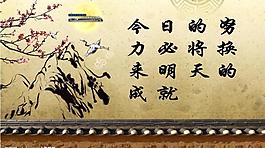 今日的努
力必将换
来明天的
成就